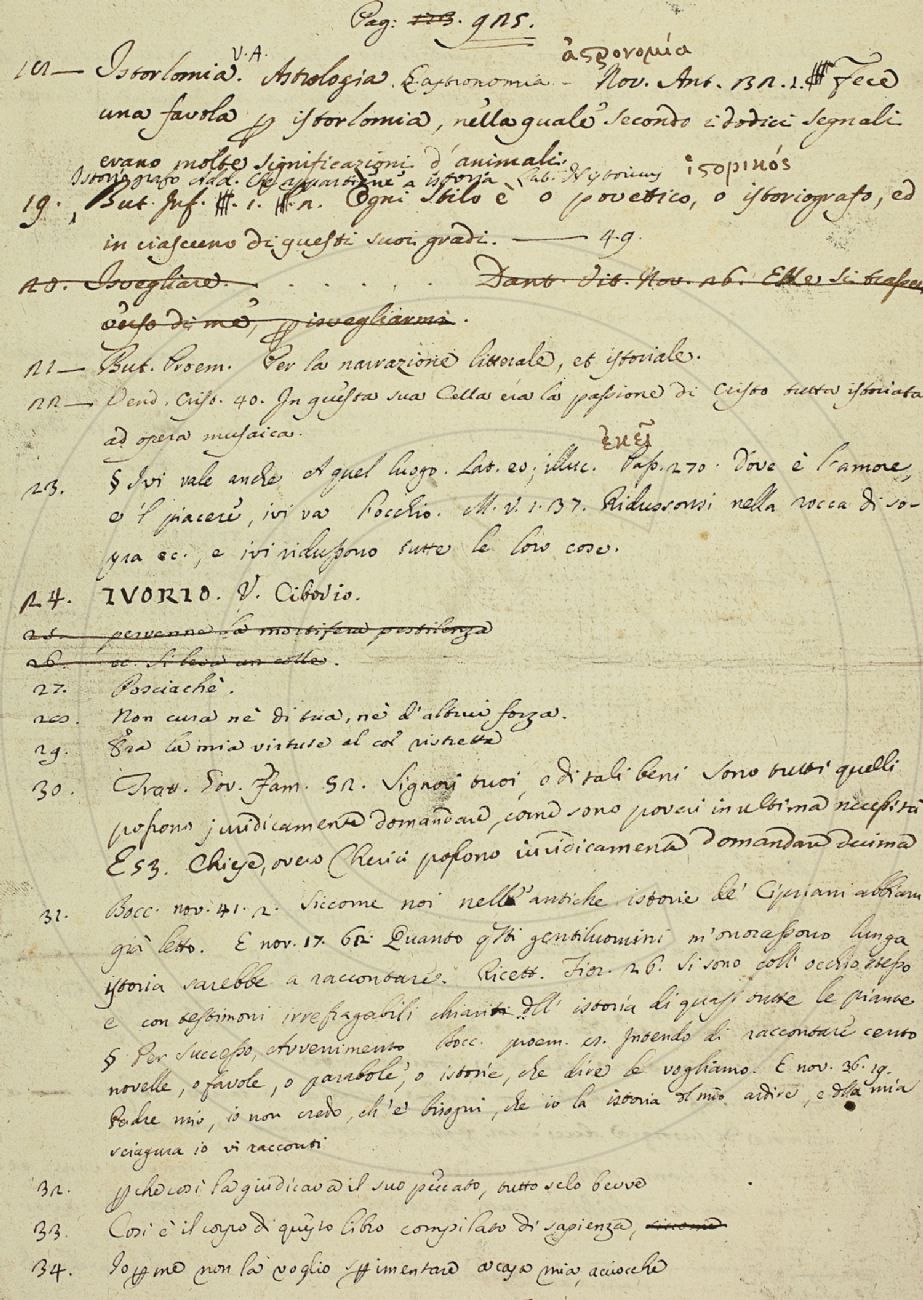 Pag: 123. 925.
18— Istorlomia. V. A. Astrologia. E astronomia - ἀστρονομία Nov. Ant. 32. 1. Fece
una favola p istorlomia, nella quale secondo i dodici segnali
evano molte significazioni d'animali.
Istoriografo add. Che appartiene a istoria Lat. Hystoricus ἱστορικός
19. But. Inf. 1. Ogni stilo è o povettico, o istoriografo, ed
in ciascuno di questi suoi gradi. —— 49.
20. Isvegliare. . . . . . Dant. Vit. Nov. 26. Elle si
verso di me, p isvegliarmi.
21— But. Proem. Per la narrazione litterale, et istoriale.
22— Vend. Crist. 40. In questa sua Cella era la passione di Cristo tutta istoriata
ad opera musaica.
23. § Ivi vale anche A quel luogo. Lat. eo, illuc. ἐκεῖ Pass. 270. Dove è l'amore,
e 'l piacere, ivi va l'occhio. M. V. 1. 37. Ridussonsi nella rocca di so-
pra ec., e ivi ridussono tutte le loro cose.
24. IVORIO. V. Cibovio.
25. pervenne la mortifera pestilenza
26. ec. si leva un colle.
27. Posciachè.
28. Non cura nè di sua, nè d'altrui forza.
29. Era la mia virtute al cor ristretta
30. Tratt. Gov. Fam. 52. Signori tuoi, e di tali beni sono tutti quelli
possono juridicamente domandare, come sono poveri in ultima necessità
E 53. Chiese, overo Cherici possono iuridicamente domandare decima
31. Bocc. nov. 41. 2. Siccome noi nell'antiche istorie de' Cipriani abbiam
già letto. E nov. 17. 62. Quanto qsti gentiluomini m'onorassono lunga
istoria sarebbe a raccontare. Ricett. Fior. 26. Si sono coll'occhio stesso
e con testimoni irrefragabili chiariti dll'istoria di quasi tutte le piante
§ Per Successo, Avvenimento Bocc. proem. 8. Intendo di raccontare cento
novelle, o favole, o parabole, o istorie, che dire le vogliamo. E nov. 36. 19.
Padre mio, io non credo, ch'e' bisogni, che io la istoria dl mio ardire, e dlla mia
sciagura io vi racconti
32. pche così la giudicava il suo peccato, tutto selo bevve
33. Così è il corpo di questo libro compilato di sapienza, siccome
34. Io p me non la voglio spimentare a casa mia, acciocchè